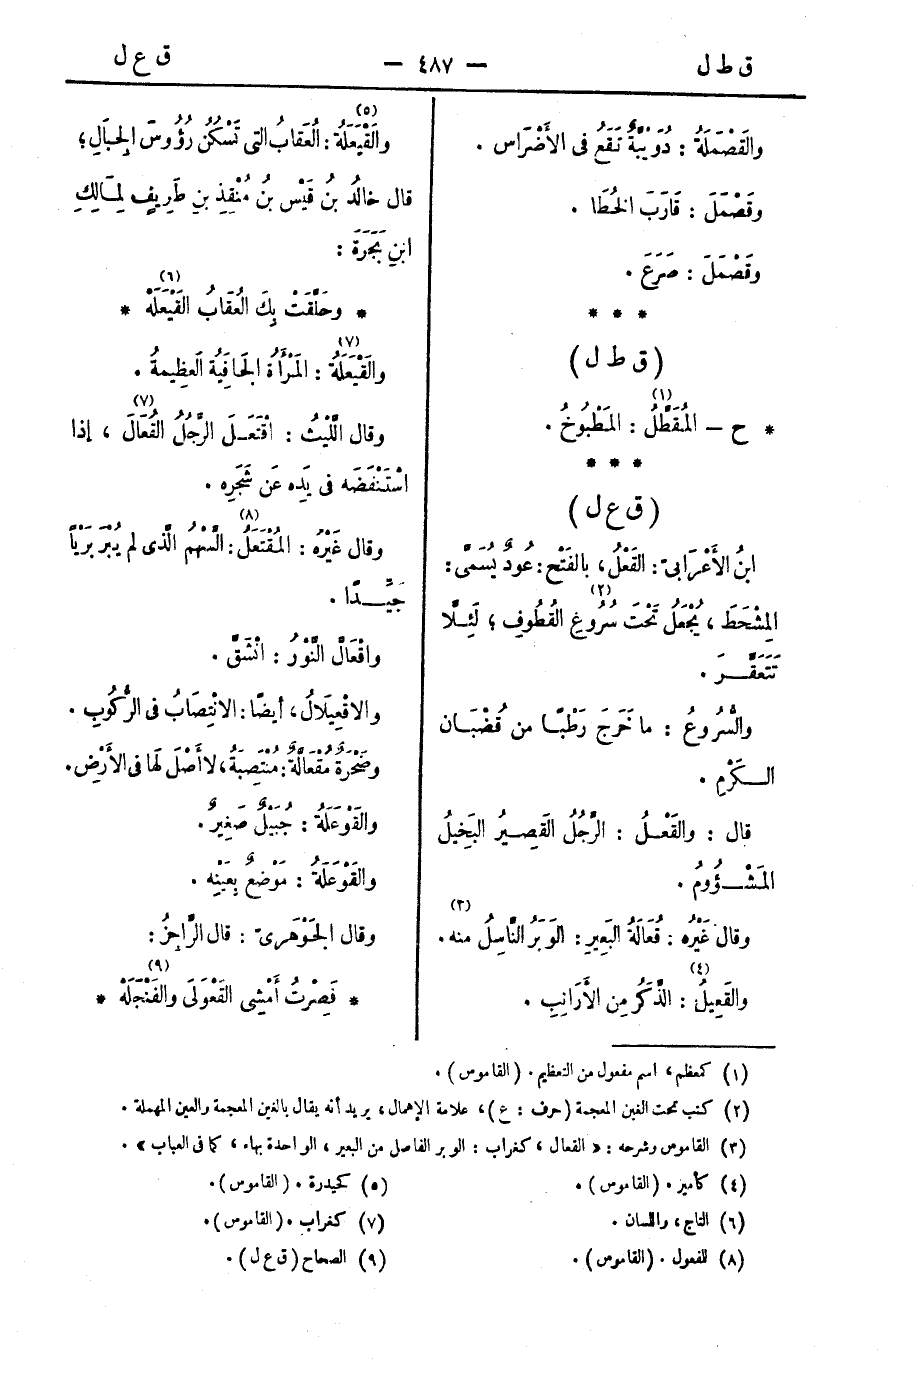 ق ط ل
— ٤٨٧ —
ق ع ل
والقَصْمَلَةُ : دُوَيْبَّةٌ تَقَعُ فى الأَضْرَاس .
وقَصْمَلَ : قَارَبَ الخُطَا .
وقَصْمَلَ : صَرَعَ .
* * *
(ق ط ل)
* ح — المُقَطَّلُ (١) : المَطْبُوخُ .
* * *
(ق ع ل)
ابنُ الأَعْرَابىّ : القَعْلُ ، بالفَتْح : عُودٌ يُسَمَّى :
المِشْحَطَ ، يُجْعَلُ تَحْتَ سُرُوعِ (٢) القُطُوفِ ؛ لَئِلَّا
تَتَعَفَّرَ .
والسُّرُوعُ : ما خَرَجَ رَطْبًا من قُضْبَان
الكَرْمِ .
قال : والقَعْلُ : الرَّجُلُ القَصِيرُ البَخِيلُ
المَشْؤُومُ .
وقال غَيْرُه : قُعَالَةُ (٣) البَعِيرِ : الوَبَرُ النَّاسِلُ منه .
والقَعِيلُ (٤) : الذَّكَرُ مِن الأَرَانِبِ .
والقَيْعَلَةُ (٥) : العُقَابُ التى تَسْكُنُ رُؤُوسَ الجِبَالِ ؛
قال خالدُ بنُ قَيْسِ بنُ مُنْقِذِ بنِ طَرِيفٍ لِمَالِكِ
ابنِ بَجَرَةَ :
* وحَلَّقَتْ بِكَ العُقَابُ القَيْعَلَهْ (٦) *
والقَيْعَلَةُ (٧) : المَرْأَةُ الجَافِيَةُ العَظِيمةُ .
وقال اللَّيْثُ : اقْتَعَلَ الرَّجُلُ القُعَالَ (٧) ، إذا
اسْتَنْفَضَه فى يَدِه عَن شَجَرِه .
وقال غَيْرُه : المُقْتَعَلُ (٨) : السَّهْمُ الَّذى لم يُبْرَ بَرْيًا
جَيِّدًا .
واقْعَالَّ النَّوْرُ : انْشَقَّ .
والاقْعِيلَالُ ، أيضًا : الانْتِصَابُ فى الرُّكُوبِ .
وصَخْرَةٌ مُقْعَالَّةٌ : مُنْتَصِبَةٌ ، لا أَصْلَ لَها فى الأَرْضِ .
والقَوْعَلَةُ : جُبَيْلٌ صَغِيرٌ .
والقَوْعَلَةُ : مَوْضعٌ بِعَيْنِه .
وقال الجَوْهَرىّ : قال الرَّاجِزُ :
* فَصِرْتُ أَمْشِى القَعْوَلَى والفَنْجَلَهْ (٩) *
(١) كمعظم ، اسم مفعول من التعظيم . (القاموس) .
(٢) كتب تحت الغين المعجمة (حرف : ع) ، علامة الإهمال ، يريد أنه يقال بالغين المعجمة والعين المهملة .
(٣) القاموس وشرحه : « القعال ، كغراب : الوبر الفاصل من البعير ، الواحدة بهاء ، كما فى العباب » .
(٤) كأمير . (القاموس) .
(٥) كحيدرة . (القاموس) .
(٦) التاج ، واللسان .
(٧) كغراب . (القاموس) .
(٨) للمفعول . (القاموس) .
(٩) الصحاح (ق ع ل) .